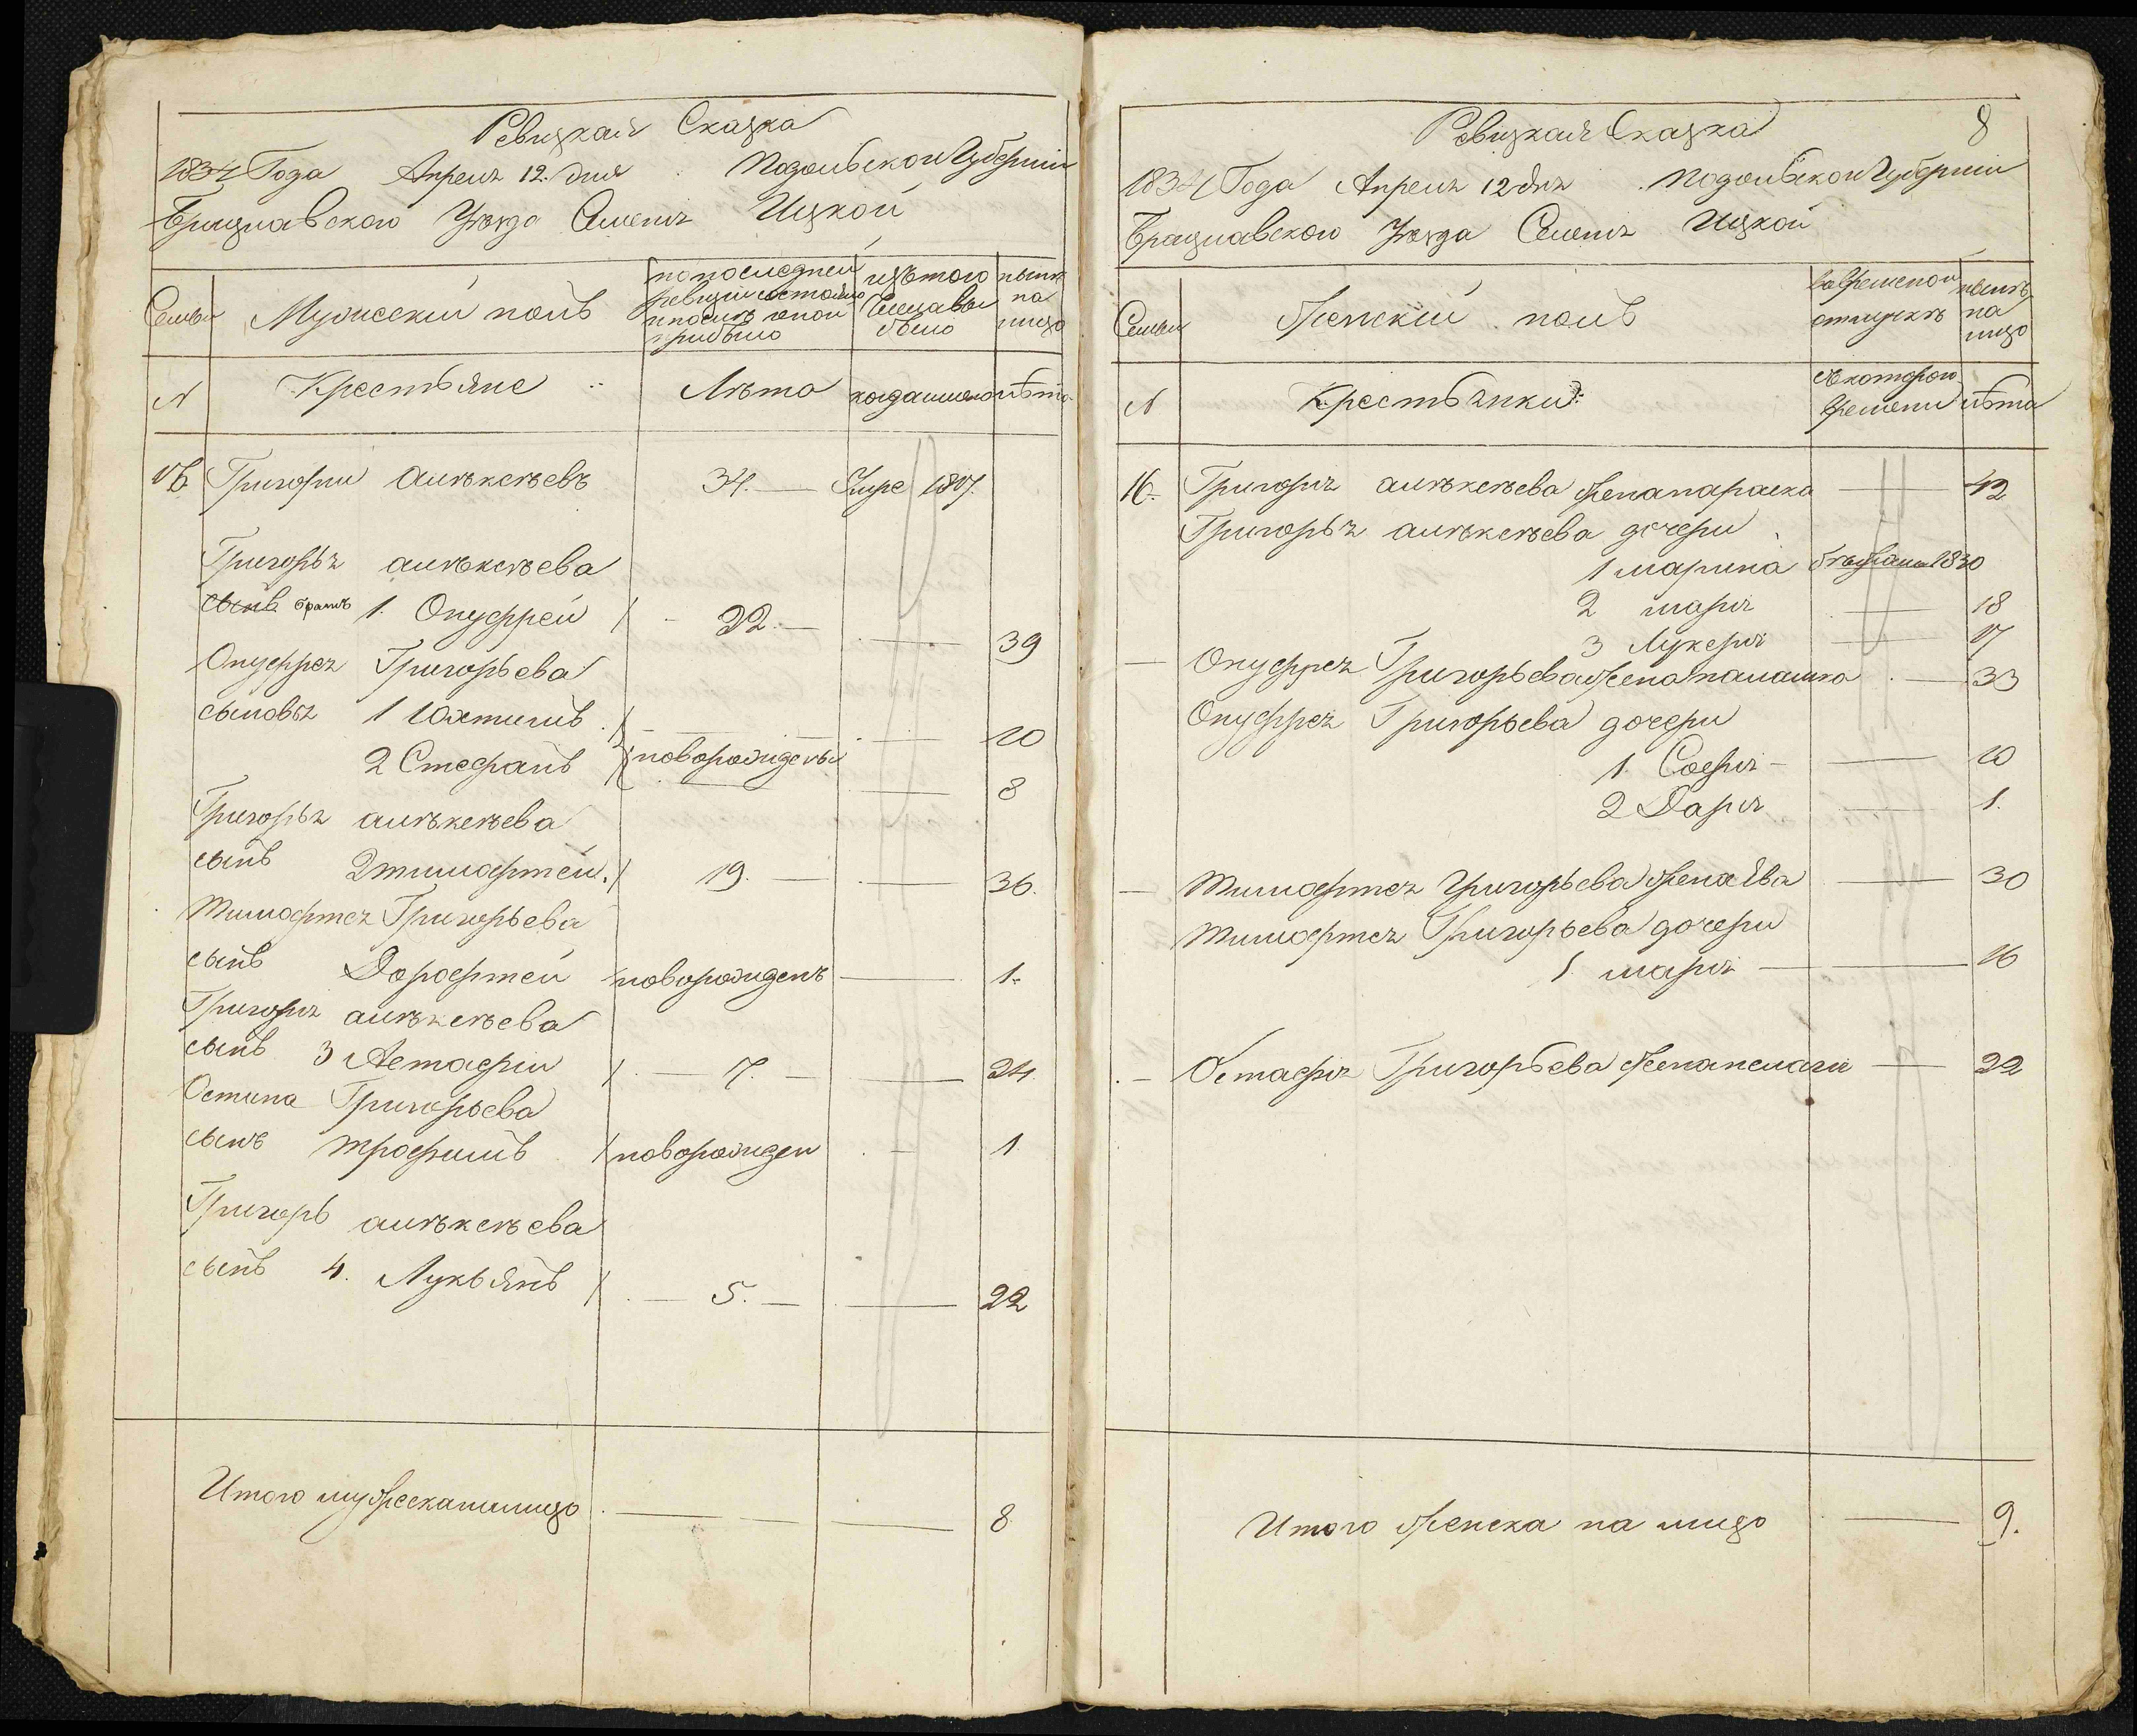 Ревизкая Сказка
1834 Года Апреля 12. дня . Подольской Губернии
Брацлавского Уезда Селения Ицкой
Семьи
Мужеский полъ
по последней ревизии состояло и после оной прибыло
изъ того числа выбыло
ныне на лицо
N
Крестьяне
Лѣта
когда именно
лѣта
16 Григории Алѣксѣевъ 34. — Умре 1817.
Григорья алѣксѣева
сынъ братъ 1. Онуфрей 22. — 39
Онуфрея Григорьева
сыновья 1 Юхтимъ — 10
2 Стефанъ новорождены — 8
Григорья алѣксѣева
сынъ 2 тимофтей. 19. — 36.
Тимофтея Григорьева
сынъ Дорофтей новорожденъ — 1.
Григория алѣксѣева
сынъ 3 Астафии — 7. — 24.
Остапа Григорьева
сынъ трофимъ новорожден — 1
Григорь алѣксѣева
сынъ 4. Лукьянъ — 5. — 22
Итого мужеска на лицо — 8
8
Ревизкая Сказка
1834 Года Апреля 12 дня . Подольской Губернии
Брацлавского Уезда Селения Ицкой
Семьи
Женскiй полъ
во временной отлучкѣ
нынѣ на лицо
N
Крестьянки:
съ которого времени
лѣта
16. Григория алѣксѣева жена параска — 42
Григорья алѣксѣева дочери
1 марина 1830
2 мария — 18
3 Лукерия — 17
— Онуфрея Григорьева жена палашка — 33
Онуфрея Григорьева дочери
1. София — 10
2 Дария — 1.
— Тимофтея Григорьева жена Ева — 30
Тимофтея Григорьева дочери
1. мария — 16
— Остафия Григорьева жена пелагия — 22
Итого женска на лицо — 9.